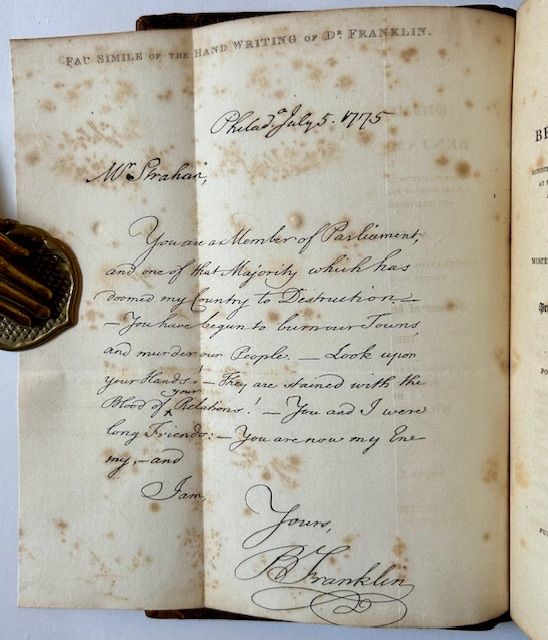 FAC SIMILE OF THE HAND WRITING OF Dr. FRANKLIN.
Philada. July 5. 1775
Mr. Strahan,
You are a Member of Parliament,
and one of that Majority which has
doomed my Country to Destruction.—
—You have begun to burn our Towns
and murder our People.— Look upon
your Hands!— They are stained with the
your
Blood of ‸ Relations!— You and I were
long Friends:— You are now my Ene
my,— and
I am,
Yours,
B Franklin
BE